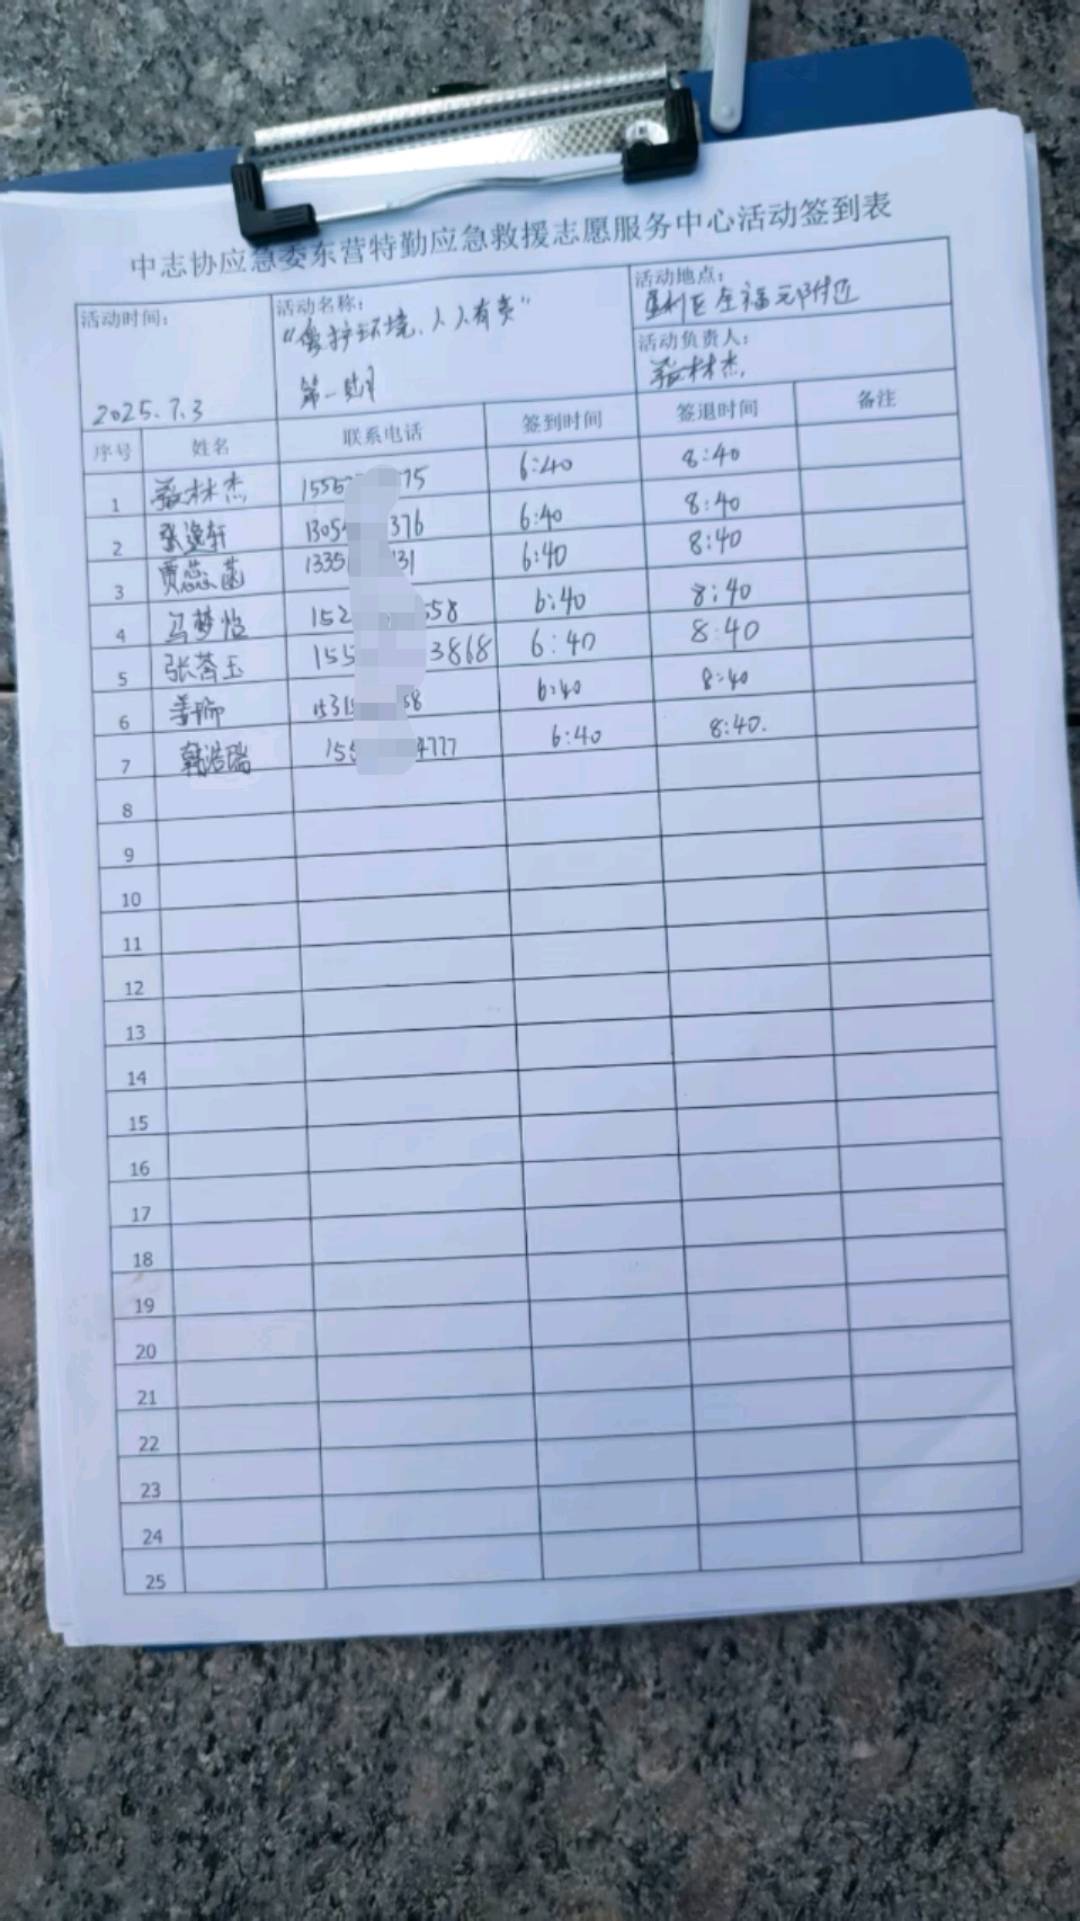 中志协应急委东营特勤应急救援志愿服务中心活动签到表
活动时间: 活动名称: 活动地点:
"保护环境、人人有责" 垦利区全福元附近
活动负责人:
2025.7.3 第一期 林杰
序号 姓名 联系电话 签到时间 签退时间 备注
1 林杰 155 75 6:40 8:40
2 张逸轩 1305 376 6:40 8:40
3 贾蕊菡 1335 31 6:40 8:40
4 马梦怡 152 558 6:40 8:40
5 张蓉玉 155 3868 6:40 8:40
6 1531 58 6:40 8:40
7 韩浩瑞 155 4777 6:40 8:40.
8
9
10
11
12
13
14
15
16
17
18
19
20
21
22
23
24
25